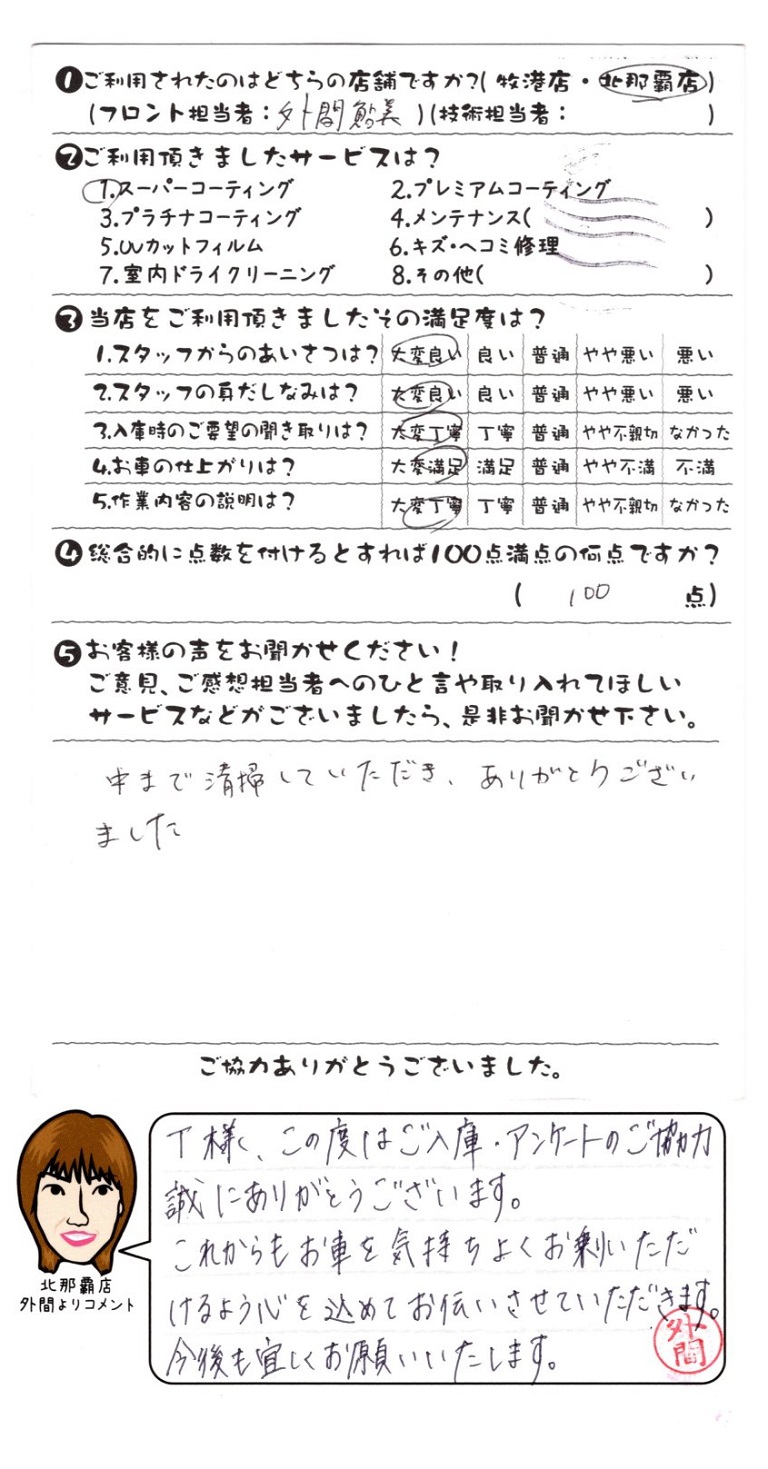 ❶ご利用されたのはどちらの店舗ですか?(牧港店・北那覇店)
(フロント担当者:外間鮎美)(技術担当者: )
❷ご利用頂きましたサービスは?
1.スーパーコーティング 2.プレミアムコーティング
3.プラチナコーティング 4.メンテナンス( )
5.UVカットフィルム 6.キズ・ヘコミ修理
7.室内ドライクリーニング 8.その他( )
❸当店をご利用頂きましたその満足度は?
1.スタッフからのあいさつは? 大変良い 良い 普通 やや悪い 悪い
2.スタッフの身だしなみは? 大変良い 良い 普通 やや悪い 悪い
3.入庫時のご要望の聞き取りは? 大変丁寧 丁寧 普通 やや不親切 なかった
4.お車の仕上がりは? 大変満足 満足 普通 やや不満 不満
5.作業内容の説明は? 大変丁寧 丁寧 普通 やや不親切 なかった
❹総合的に点数を付けるとすれば100点満点の何点ですか?
( 100 点)
❺お客様の声をお聞かせください!
ご意見、ご感想担当者へのひと言や取り入れてほしい
サービスなどがございましたら、是非お聞かせ下さい。
中まで清掃していただき、ありがとうござい
ました
ご協力ありがとうございました。
T様、この度はご入庫・アンケートのご協力
誠にありがとうございます。
これからもお車を気持ちよくお乗りいただ
けるよう心を込めてお伝いさせていただきます。
今後も宜しくお願いいたします。
外間
北那覇店
外間よりコメント